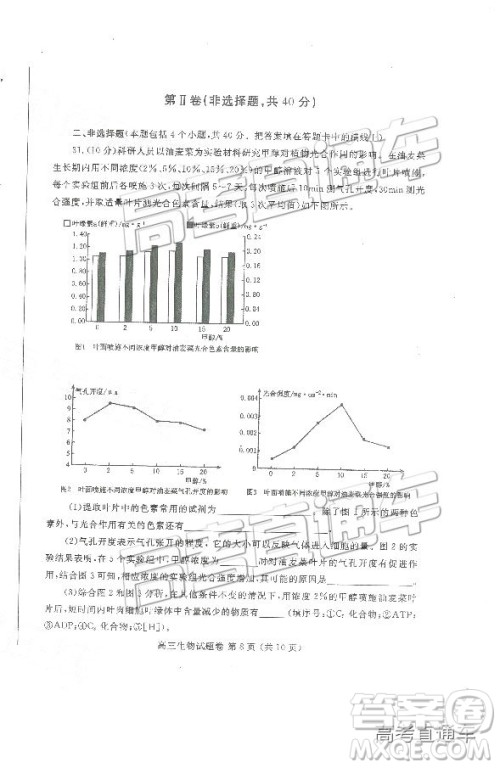 第Ⅱ卷(非选择题,共40分)
二、非选择题(本题包括4个小题,共40分。把答案填在答题卡中的横线上)
31.(10分)科研人员以油麦菜为实验材料研究甲醇对植物光合作用的影响。在油麦菜
生长期内用不同浓度(2%,5%,10%,15%,20%)的甲醇溶液对5个实验组进行叶片喷施,
每个实验组前后各喷施3次,每次间隔5~7天,每次喷施后10min测气孔开度,30min测光
合强度,并适采叶片测光合色素含量,结果(平均值)如下图所示。
叶绿素a(鲜重)/mg·g⁻¹
叶绿素b(鲜重)/mg·g⁻¹
1.40
1.20
1.00
0.80
0.60
0.40
0.20
0.00
0 2 5 10 15 20
甲醇/%
图1 叶面喷施不同浓度甲醇对油麦菜光合色素含量的影响
气孔开度
10
9
8
7
6
5
4
0 2 5 10 15 20
甲醇/%
图2 叶面喷施不同浓度甲醇对油麦菜气孔开度的影响
光合强度/mg·cm⁻²·min⁻¹
0.004
0.003
0.002
0.001
0.000
0 2 5 10 15 20
甲醇/%
图3 叶面喷施不同浓度甲醇对油麦菜光合强度的影响
(1)提取叶片中的色素常用的试剂为 。除了图1所示的两种色
素外,与光合作用有关的色素还有 。
(2)气孔开度表示气孔张开的程度,它的大小可以反映气体进入细胞的量。图2的实
验结果表明,在5个实验组中,甲醇浓度为 时对油麦菜叶片的气孔开度影响最
大。结合图3可知,相应的光合强度并不是最大,其可能的原因是 。
(3)综合图2和图3分析,在其他条件不变的情况下,使用浓度2%的甲醇喷施油麦菜叶
片后,短时间内叶肉细胞的叶绿体中含量减少的物质有 (填序号:①C₅化合物;②ATP;
③NADP⁺;④C₃化合物;⑤[H])。
高三生物试题卷 第8页(共10页)
高考直通车
高考直通车
高考直通车
答案圈
MXQE.COM